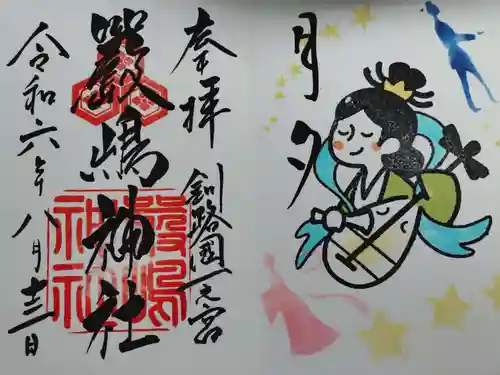 月夕
奉拝
釧路國一之宮
嚴嶋神社
嚴嶋
神社
令和六年八月十三日